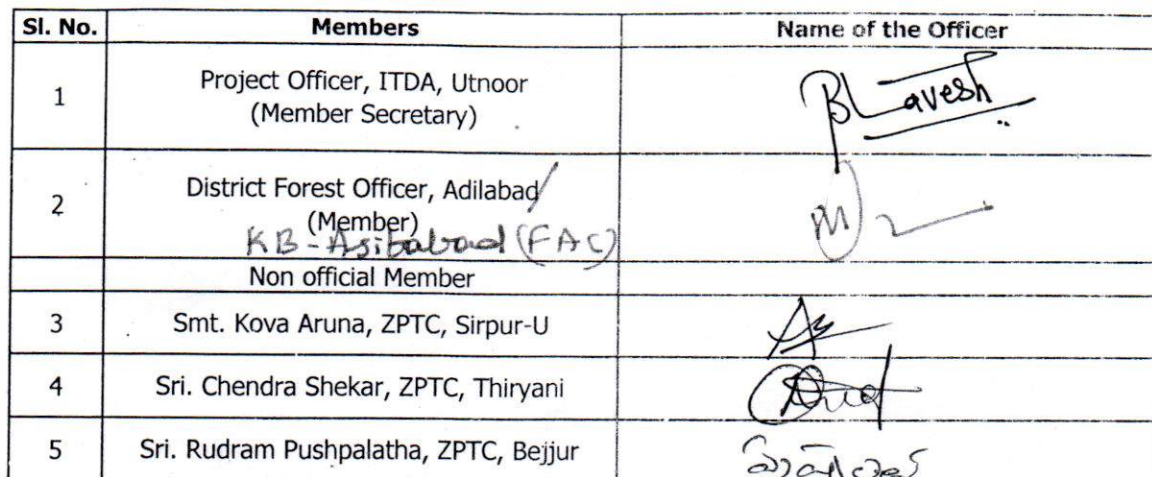 Sl. No. Members Name of the Officer
1 Project Officer, ITDA, Utnoor
(Member Secretary)
Bhavesh
2 District Forest Officer, Adilabad/
(Member)
KB-Asifabad (FAC)
Non official Member
3 Smt. Kova Aruna, ZPTC, Sirpur-U
4 Sri. Chendra Shekar, ZPTC, Thiryani
5 Sri. Rudram Pushpalatha, ZPTC, Bejjur